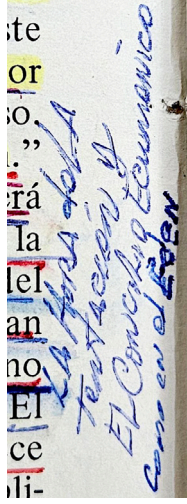 ste
or
so.
.”
erá
la
del
an
no
El
ce
pli-
La Hora de LA
Tentación y
EL Concilio Ecumenico
como en el EDEN